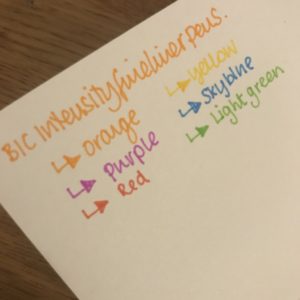 BIC Intensity fineliner pens.
↳ orange
↳ purple
↳ Red
↳ yellow
↳ skyblue
↳ Light green